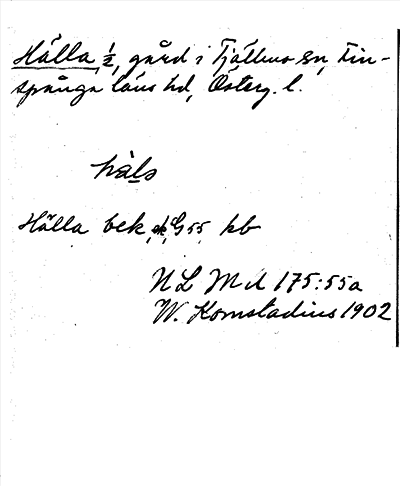 Hälla, 1/2, gård i Tjällmo sn, Fin-
spånga läns hd, Österg. l.
håls
Hälla bek, sk, G 55, kb
NLM d 175:55a
W. Komstadius 1902